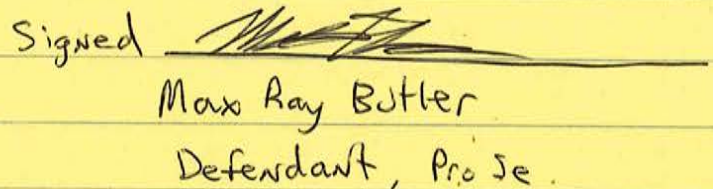 Signed
Max Ray Butler
Defendant, Pro Se.